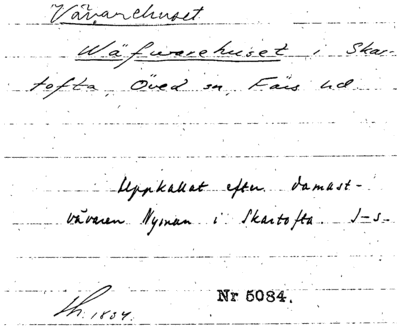 Vävarehuset
Wäfvarehuset i Skar-
tofta, Öved sn, Färs hd.
Uppkallat efter damast-
vävaren Nyman i Skartofta. J-s-
Nr 5084.
th. 1834.